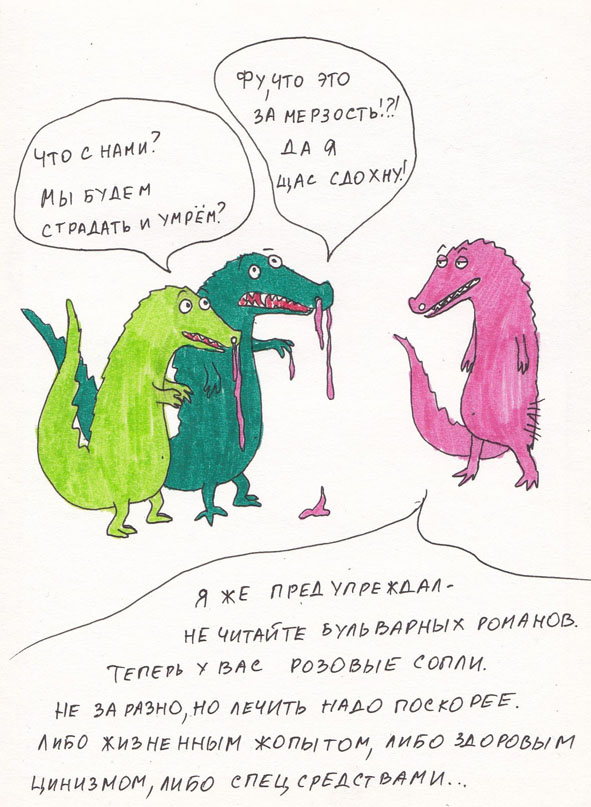 ЧТО С НАМИ?
МЫ БУДЕМ
СТРАДАТЬ И УМРЁМ?
ФУ, ЧТО ЭТО
ЗА МЕРЗОСТЬ!?!
ДА Я
ЩАС СДОХНУ!
Я ЖЕ ПРЕДУПРЕЖДАЛ-
НЕ ЧИТАЙТЕ БУЛЬВАРНЫХ РОМАНОВ.
ТЕПЕРЬ У ВАС РОЗОВЫЕ СОПЛИ.
НЕ ЗАРАЗНО, НО ЛЕЧИТЬ НАДО ПОСКОРЕЕ.
ЛИБО ЖИЗНЕННЫМ ЖОПЫТОМ, ЛИБО ЗДОРОВЫМ
ЦИНИЗМОМ, ЛИБО СПЕЦСРЕДСТВАМИ...